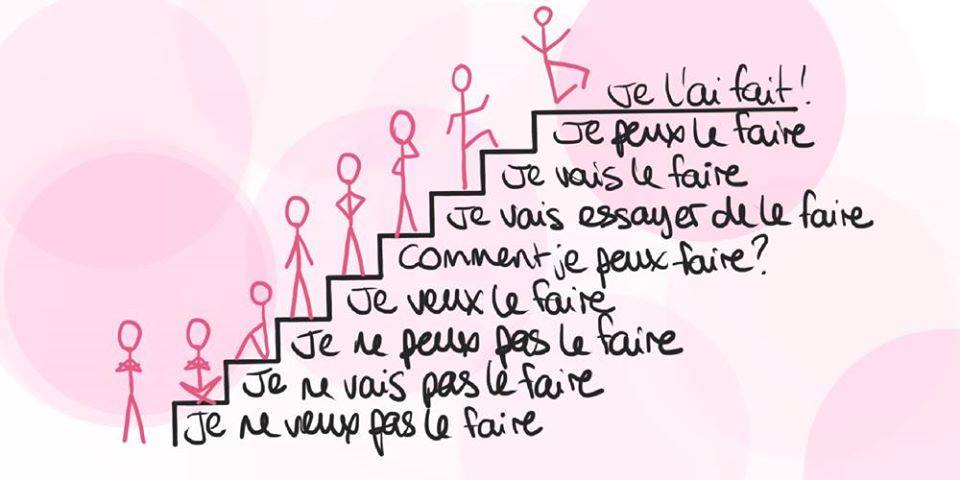 Je l'ai fait!
Je peux le faire
Je vais le faire
Je vais essayer de le faire
Comment je peux faire?
Je veux le faire
Je ne peux pas le faire
Je ne vais pas le faire
Je ne veux pas le faire